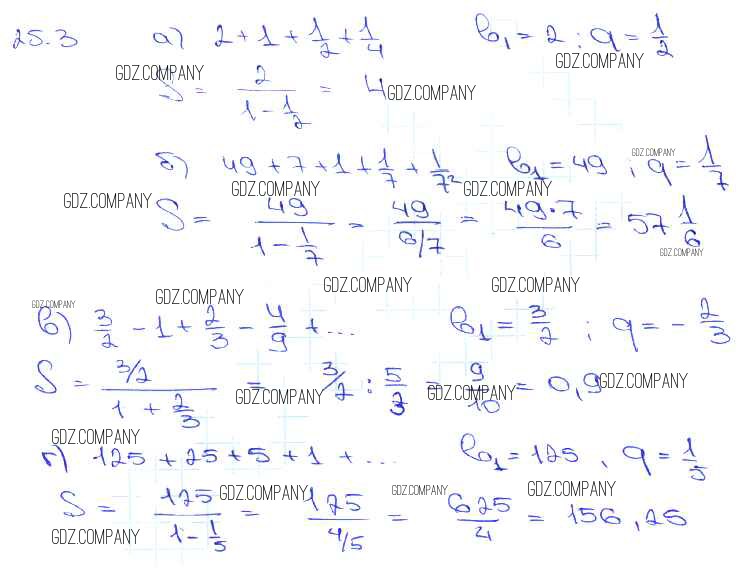 25.3 а) 2 + 1 + 1/2 + 1/4 b₁ = 2 ; q = 1/2
GDZ.COMPANY GDZ.COMPANY
S = 2/(1 - 1/2) = 4 GDZ.COMPANY
б) 49 + 7 + 1 + 1/7 + 1/7² b₁ = 49 ; q = 1/7 GDZ.COMPANY
GDZ.COMPANY GDZ.COMPANY GDZ.COMPANY
S = 49/(1 - 1/7) = 49/(6/7) = 49·7/6 = 57 1/6
GDZ.COMPANY
GDZ.COMPANY GDZ.COMPANY GDZ.COMPANY GDZ.COMPANY
в) 3/2 - 1 + 2/3 - 4/9 + ... b₁ = 3/2 ; q = - 2/3
S = (3/2)/(1 + 2/3) = 3/2 : 5/3 = 9/10 = 0,9 GDZ.COMPANY
GDZ.COMPANY GDZ.COMPANY
GDZ.COMPANY
г) 125 + 25 + 5 + 1 + ... b₁ = 125 , q = 1/5
S = 125/(1 - 1/5) = 125/(4/5) = 625/4 = 156,25
GDZ.COMPANY GDZ.COMPANY GDZ.COMPANY
GDZ.COMPANY